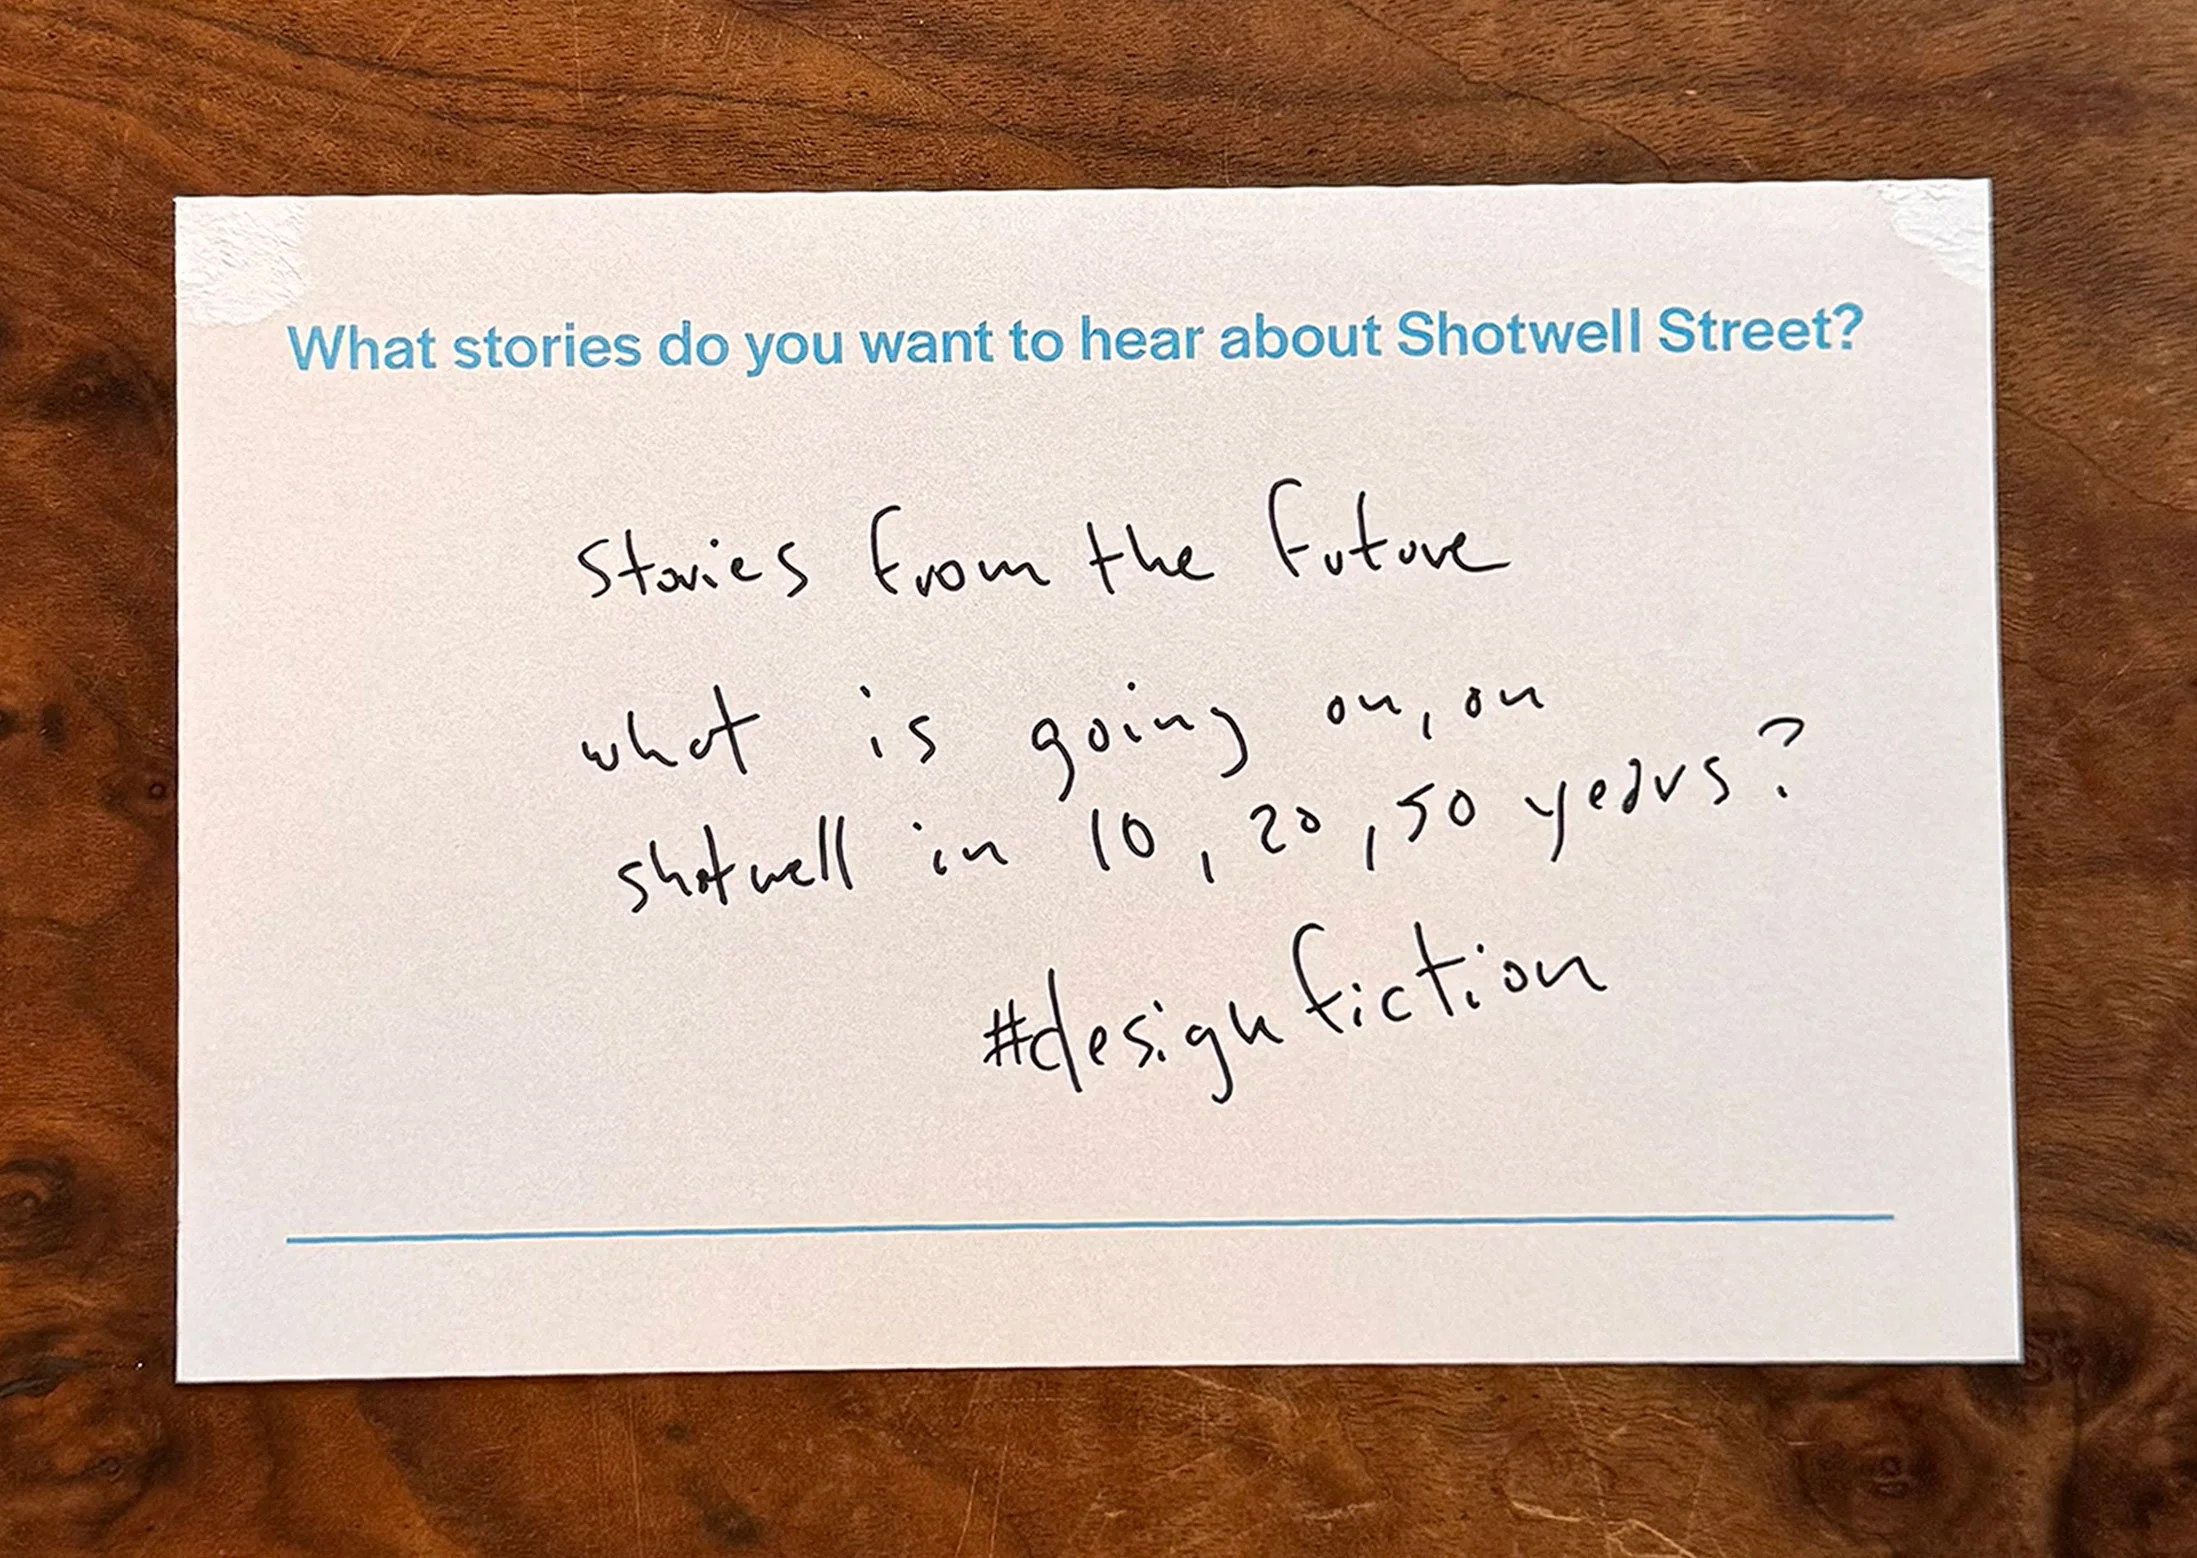 What stories do you want to hear about Shotwell Street?
Stories from the future
what is going on, on
shotwell in 10, 20, 50 years?
#designfiction